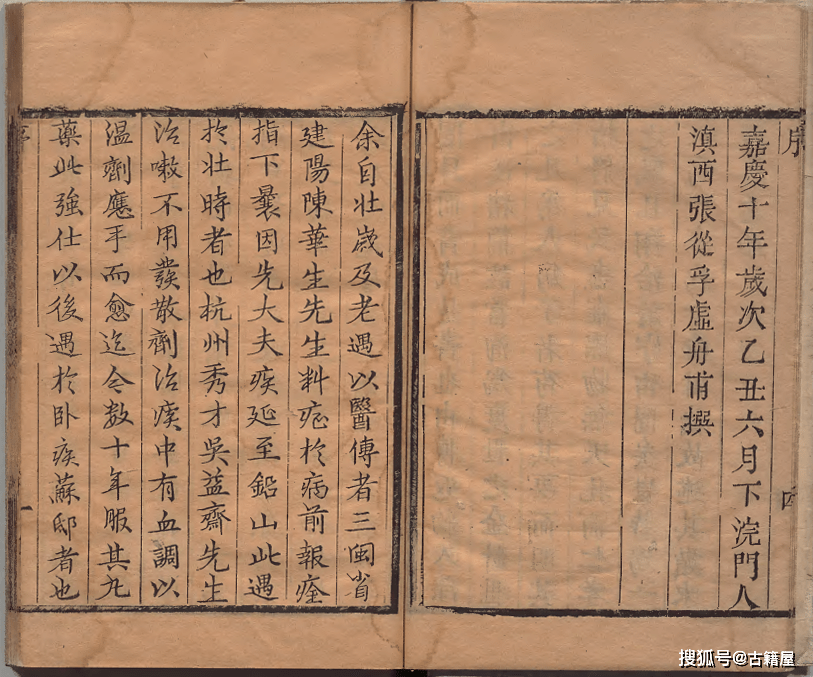 序
嘉慶十年歲次乙丑六月下浣門人
滇西張從孚虛舟甫撰
四
余自壯歲及老遇以醫傳者三閩省
建陽陳華生先生料症於病前報痊
指下曩因先大夫疾延至鉛山此遇
於壯時者也杭州秀才吳益齋先生
治嗽不用發散劑治痰中有血調以
温劑應手而愈迄今数十年服其丸
藥此強仕以後遇於卧疾蘇邸者也
序
一
搜狐号@古籍屋